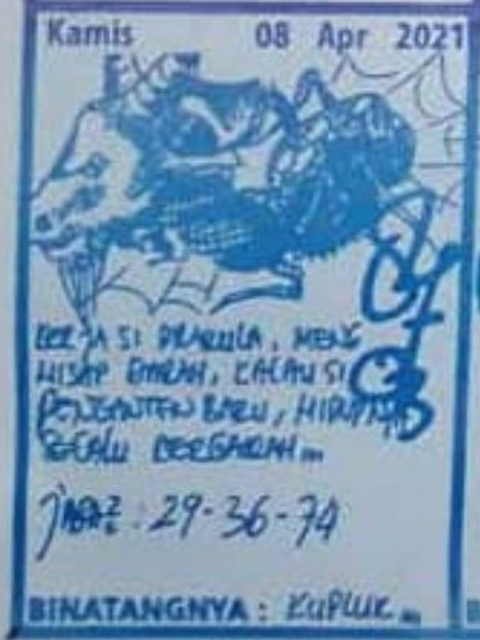 Kamis 08 Apr 2021
KERJA SI DRAKULA, MENG
HISAP DARAH, KALAU SI
PENGANTEN BARU, HIDUPNYA
SELALU BERGAIRAH...
: 29-36-74
BINATANGNYA : KUPLUK...